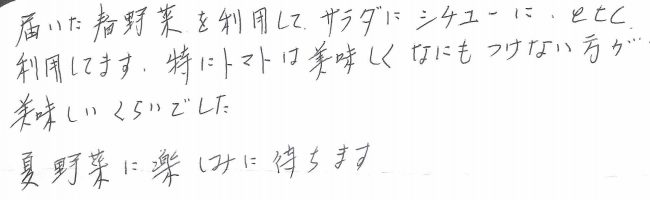 届いた春野菜を利用して、サラダに シチューに、etc
利用してます。特にトマトは美味しく なにもつけない方が
美味しいくらいでした
夏野菜に楽しみに待ちます